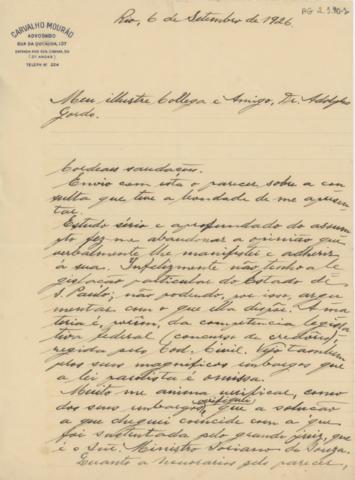 AG 2.3.90-2
CARVALHO MOURÃO
ADVOGADO
RUA DA QUITANDA, 107
(2º ANDAR)
TELEPH Nº 224
Rio, 6 de Setembro de 1926
Meu illustre Collega e Amigo, Dr. Adolpho
Gordo.
Cordeaes saudações.
Envio com esta o parecer sobre a con-
sulta que teve a bondade de me apresen-
tar.
Estudo sério e aprofundado do assum-
pto fez-me abandonar a opinião que
verbalmente lhe manifestei e adherir
á sua. Infelizmente não tenho a le-
gislação particular do Estado de
S. Paulo; não podendo, por isso, argu-
mentar com o que ella dispõe. A ma-
teria é, porém, da competencia legisla-
tiva federal (concurso de credores);
regida pelo Cod. Civil. Vejo tambem
pelos seus magnificos embargos que
a lei paulista é omissa.
Muito me anima verificar, como
dos seus embargos verifiquei, que a solução
a que cheguei coincide com a que
foi sustentada pelo grande juiz, que
é o Snr. Ministro Soriano de Souza.
Quanto a honorarios pelo parecer,